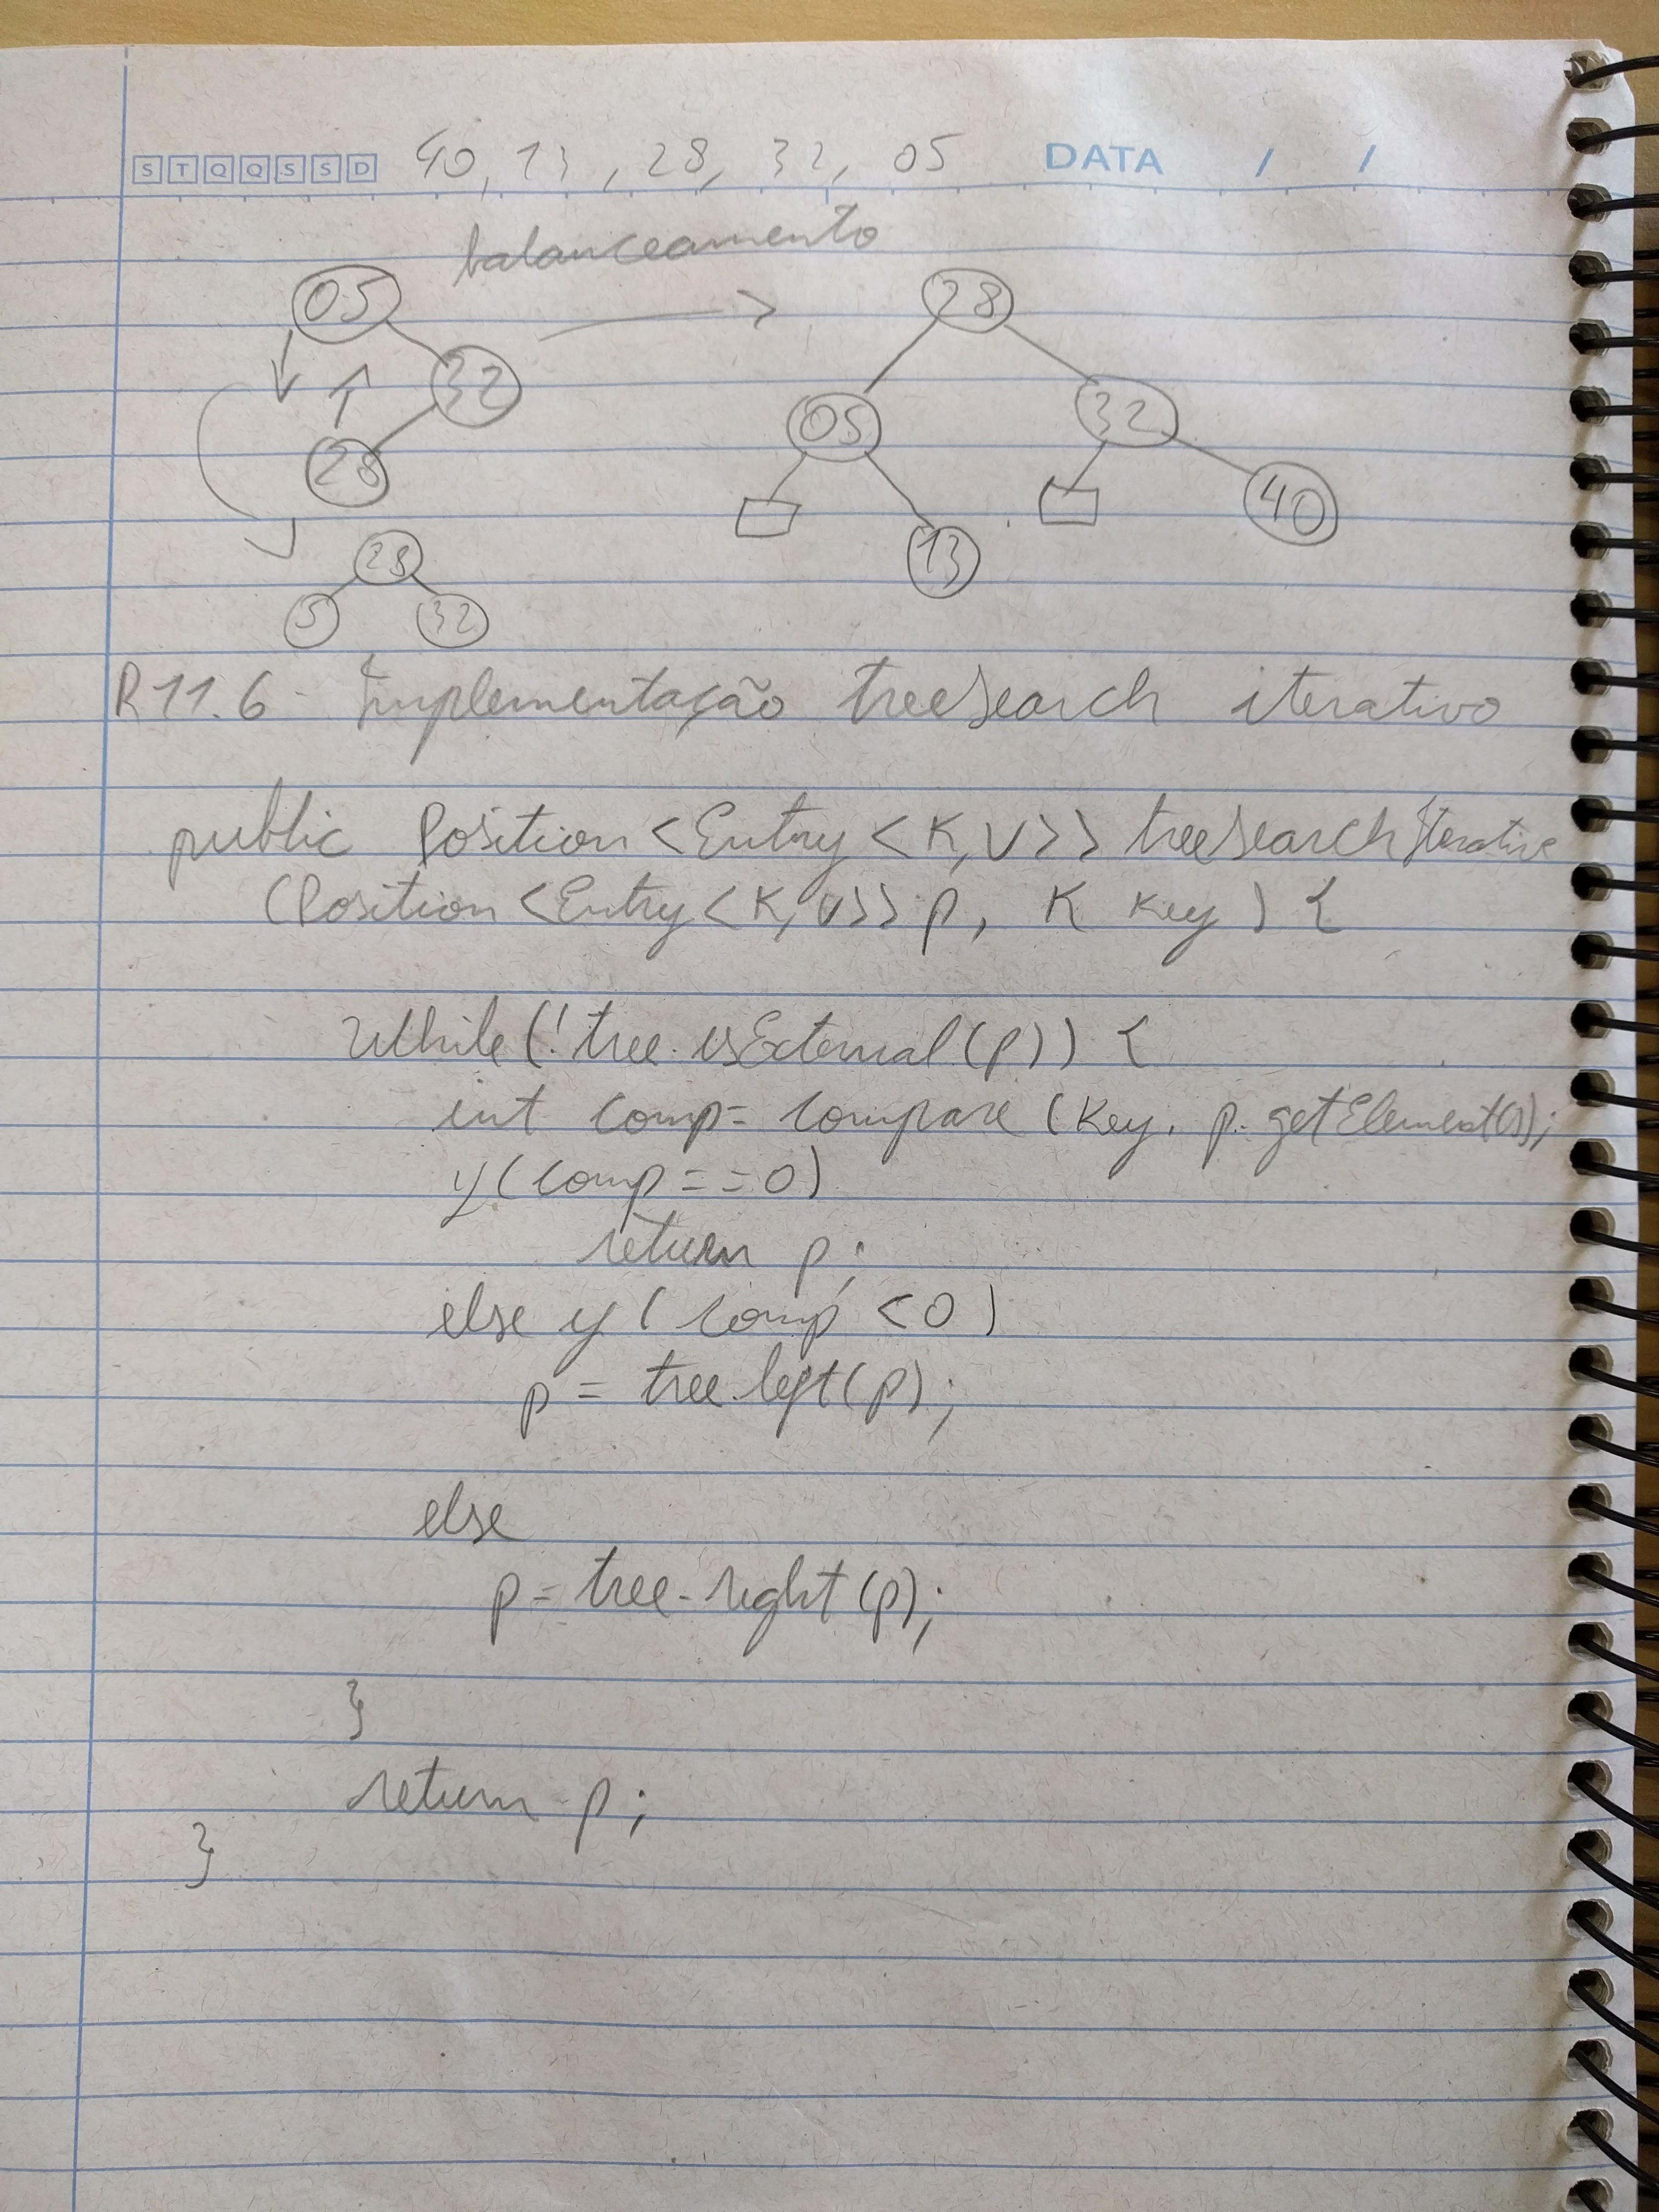 S T Q Q S S D 40, 13, 28, 32, 05 DATA / /
balanceamento
05 28
32
28 05 32
40
28 13
5 32
R11.6 - Implementação treeSearch iterativo
public Position <Entry <K,V>> treeSearchIterative
(Position <Entry <K,V>> p, K key) {
while (! tree.isExternal(p)) {
int comp= compare (key, p.getElement());
if (comp == 0)
return p;
else if (comp < 0)
p = tree.left(p);
else
p = tree.right(p);
}
return p;
}